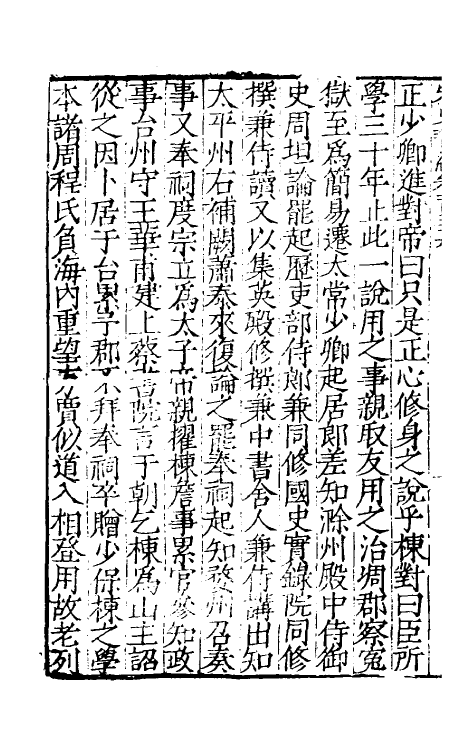 正少卿進對帝曰只是正心修身之說乎棟對曰臣所
學三十年止此一說用之事親取友用之治凋郡察冤
獄至為簡易遷太常少卿起居郎差知滁州殿中侍御
史周坦論罷起歷吏部侍郎兼同修國史實錄院同修
撰兼侍讀又以集英殿修撰兼中書舍人兼侍講出知
太平州右補闕蕭泰來復論之罷奉祠起知婺州召奏
事又奉祠度宗立為太子帝親擢棟詹事累官參知政
事台州守王華甫建上蔡書院言于朝乞棟為山主詔
從之因卜居于台累予郡不拜奉祠卒贈少保棟之學
本諸周程氏負海內重望賈似道入相登用故老列